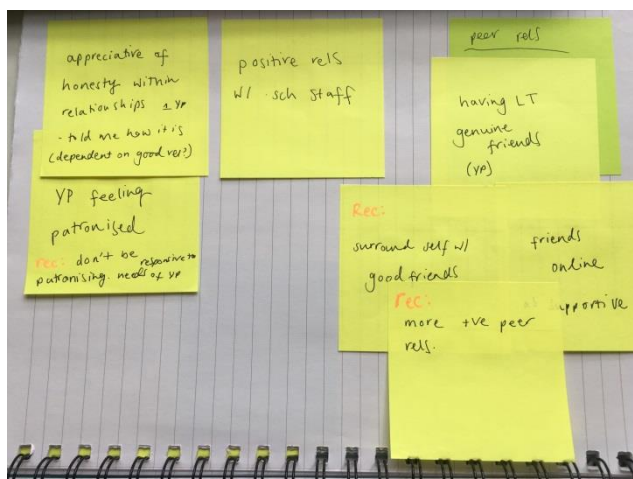 appreciative of
honesty within
relationships 1 YP
- told me how it is
(dependent on good rel?)
YP feeling
patronised
rec: don't be responsive to
patronising. needs of YP
positive rels
w/ sch staff
peer rels
having LT
genuine
friends
(YP)
Rec:
surround self w/
good friends
friends
online
supportive
rec:
more +ve peer
rels.